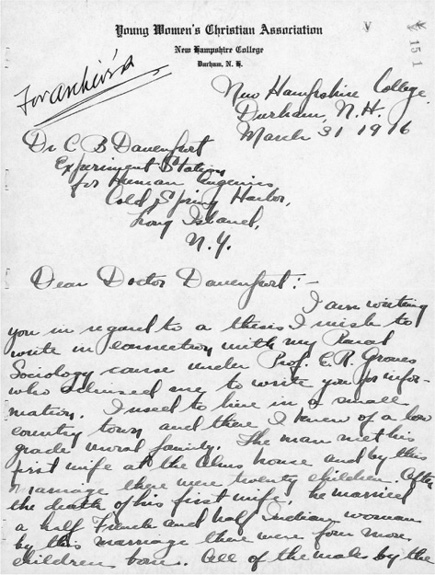 Young Women's Christian Association
New Hampshire College
Durham, N. H.
V
15 1
For archives
New Hampshire College
Durham, N.H.
March 31 1916
Dr C B Davenfort
Experiment Station
for Human Eugenics
Cold Spring Harbor,
Long Island,
N.Y.
Dear Doctor Davenfort:-
I am writing
you in regard to a thesis I wish to
write in connection with my Rural
Sociology course under Prof. E. R. Groves
who advised me to write you for infor-
mation. I used to live in a small
country town and there I knew of a low
grade moral family. The man met his
first wife at the alms house and by this
marriage there were twenty children. After
the death of his first wife, he married
a half French and half Indian woman
by this marriage there were four more
children born. All of the males by the